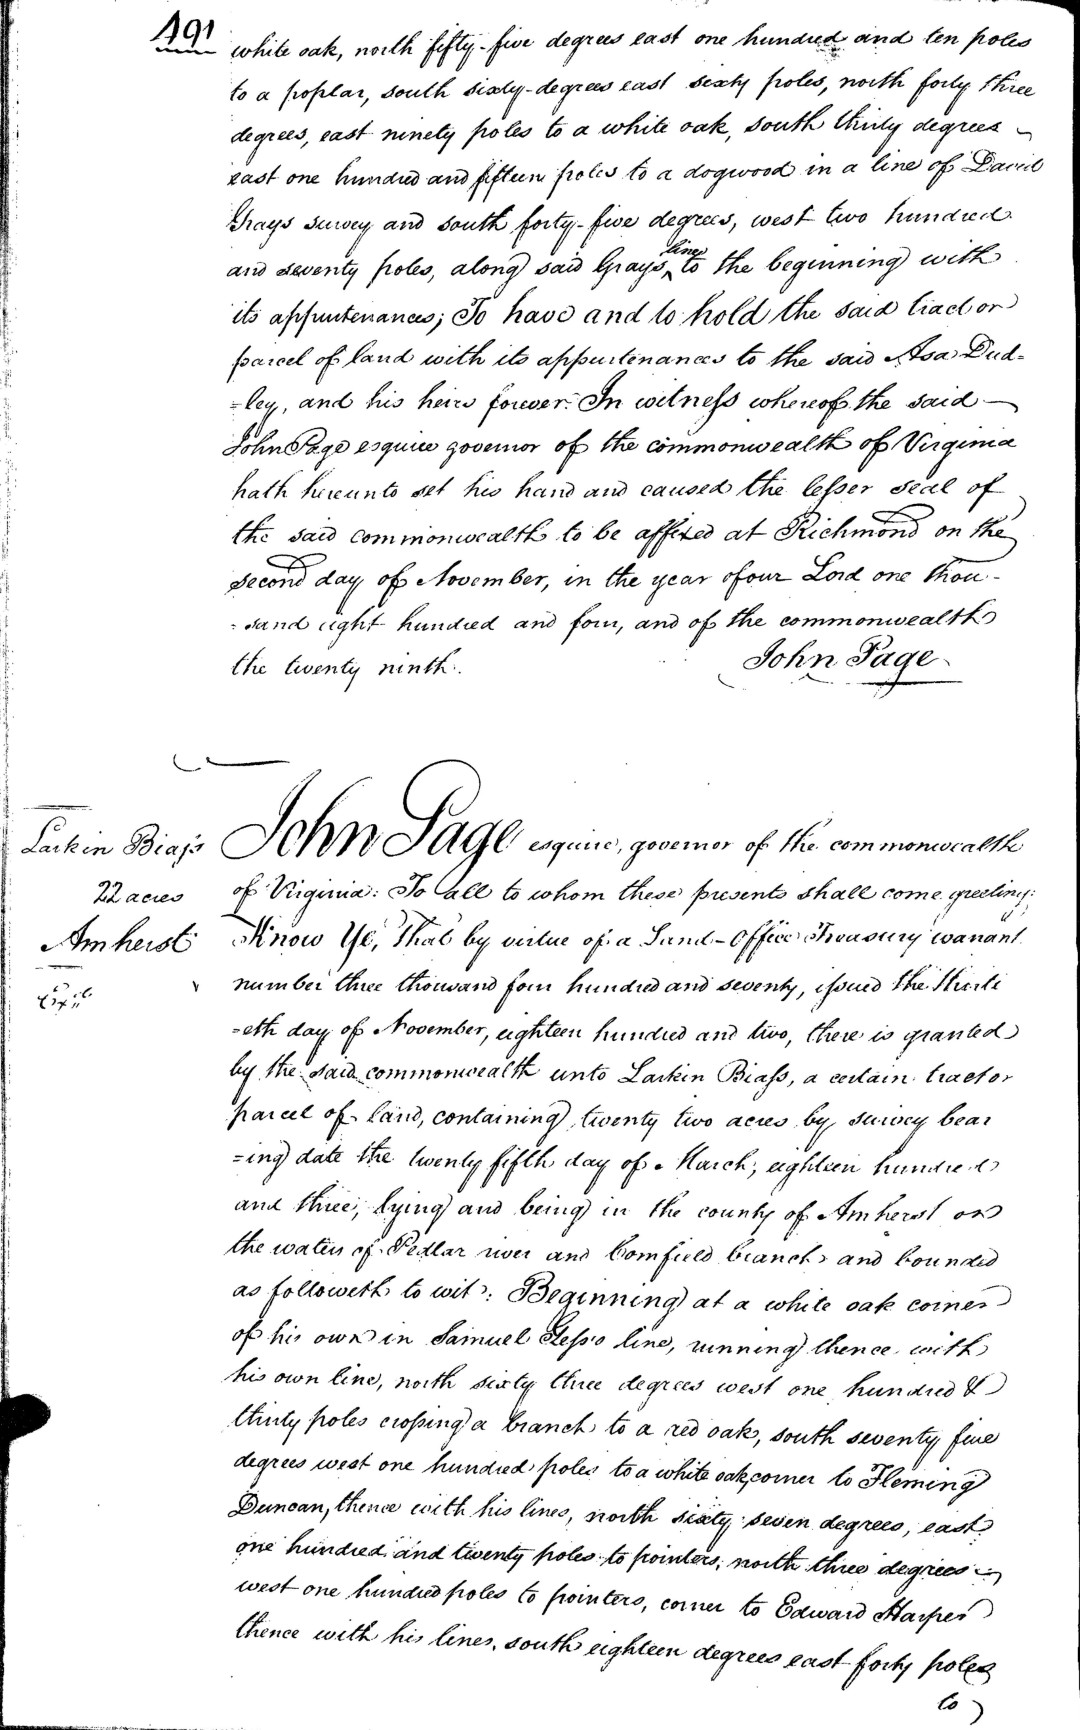 491
white oak, north fifty-five degrees east one hundred and ten poles
to a poplar, south sixty-degrees east sixty poles, north forty three
degrees, east ninety poles to a white oak, south thirty degrees
east one hundred and fifteen poles to a dogwood in a line of David
Grays survey and south forty-five degrees, west two hundred
and seventy poles, along said Grays line to the beginning with
its appurtenances; To have and to hold the said tract or
parcel of land with its appurtenances to the said Asa Dud=
=ley, and his heirs forever. In witness whereof the said
John Page esquire governor of the commonwealth of Virginia
hath hereunto set his hand and caused the lesser seal of
the said commonwealth to be affixed at Richmond on the
second day of November, in the year of our Lord one thou-
-sand eight hundred and four, and of the commonwealth
the twenty ninth.
John Page
Larkin Biass
22 acres
Amherst
John Page esquire, governor of the commonwealth
of Virginia: To all to whom these presents shall come greeting:
Know Ye, That by virtue of a Land-Office Treasury warrant
number three thousand four hundred and seventy, issued the thirti
=eth day of November, eighteen hundred and two, there is granted
by the said commonwealth unto Larkin Biass, a certain tract or
parcel of land, containing twenty two acres by survey bear
=ing date the twenty fifth day of March, eighteen hundred
and three, lying and being in the county of Amherst on
the waters of Pedlar river and Cornfield branch and bounded
as followeth to wit: Beginning at a white oak corner
of his own in Samuel line, running thence with
his own line, north sixty three degrees west one hundred &
thirty poles crossing a branch to a red oak, south seventy five
degrees west one hundred poles to a white oak, corner to Fleming
Duncan, thence with his lines, north sixty seven degrees, east
one hundred and twenty poles to pointers, north three degrees
west one hundred poles to pointers, corner to Edward Harper
thence with his lines, south eighteen degrees east forty poles
to